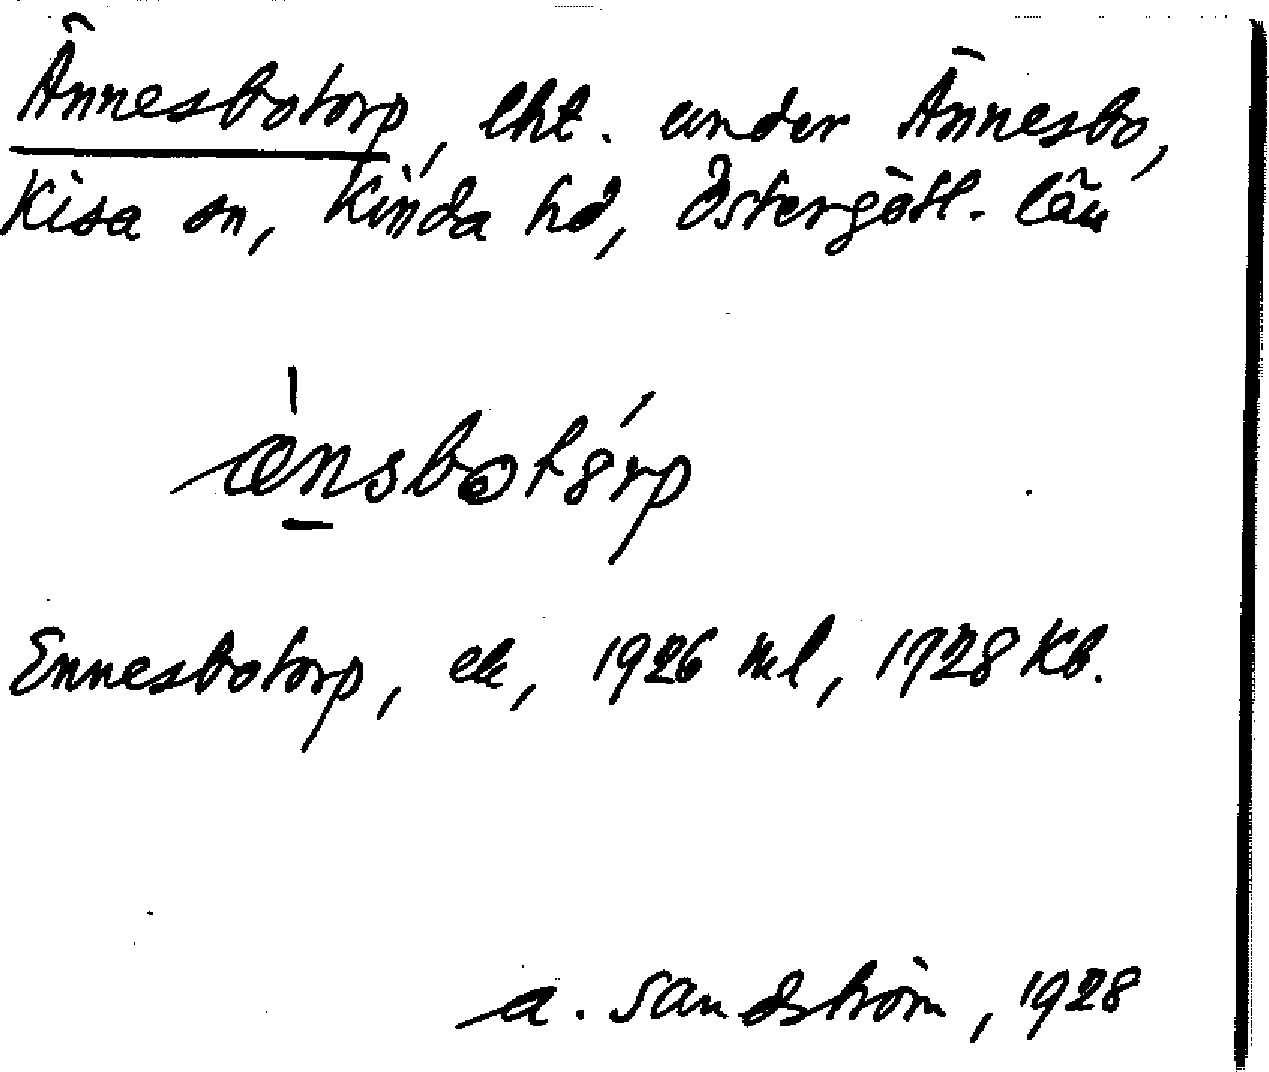 Ännesbotorp, lht. under Ännesbo,
Kisa sn, Kinda hd, Östergötl. län
ænsbotórp
Ennesbotorp, ek, 1926 ml, 1928 Kb.
A. Sandström, 1928